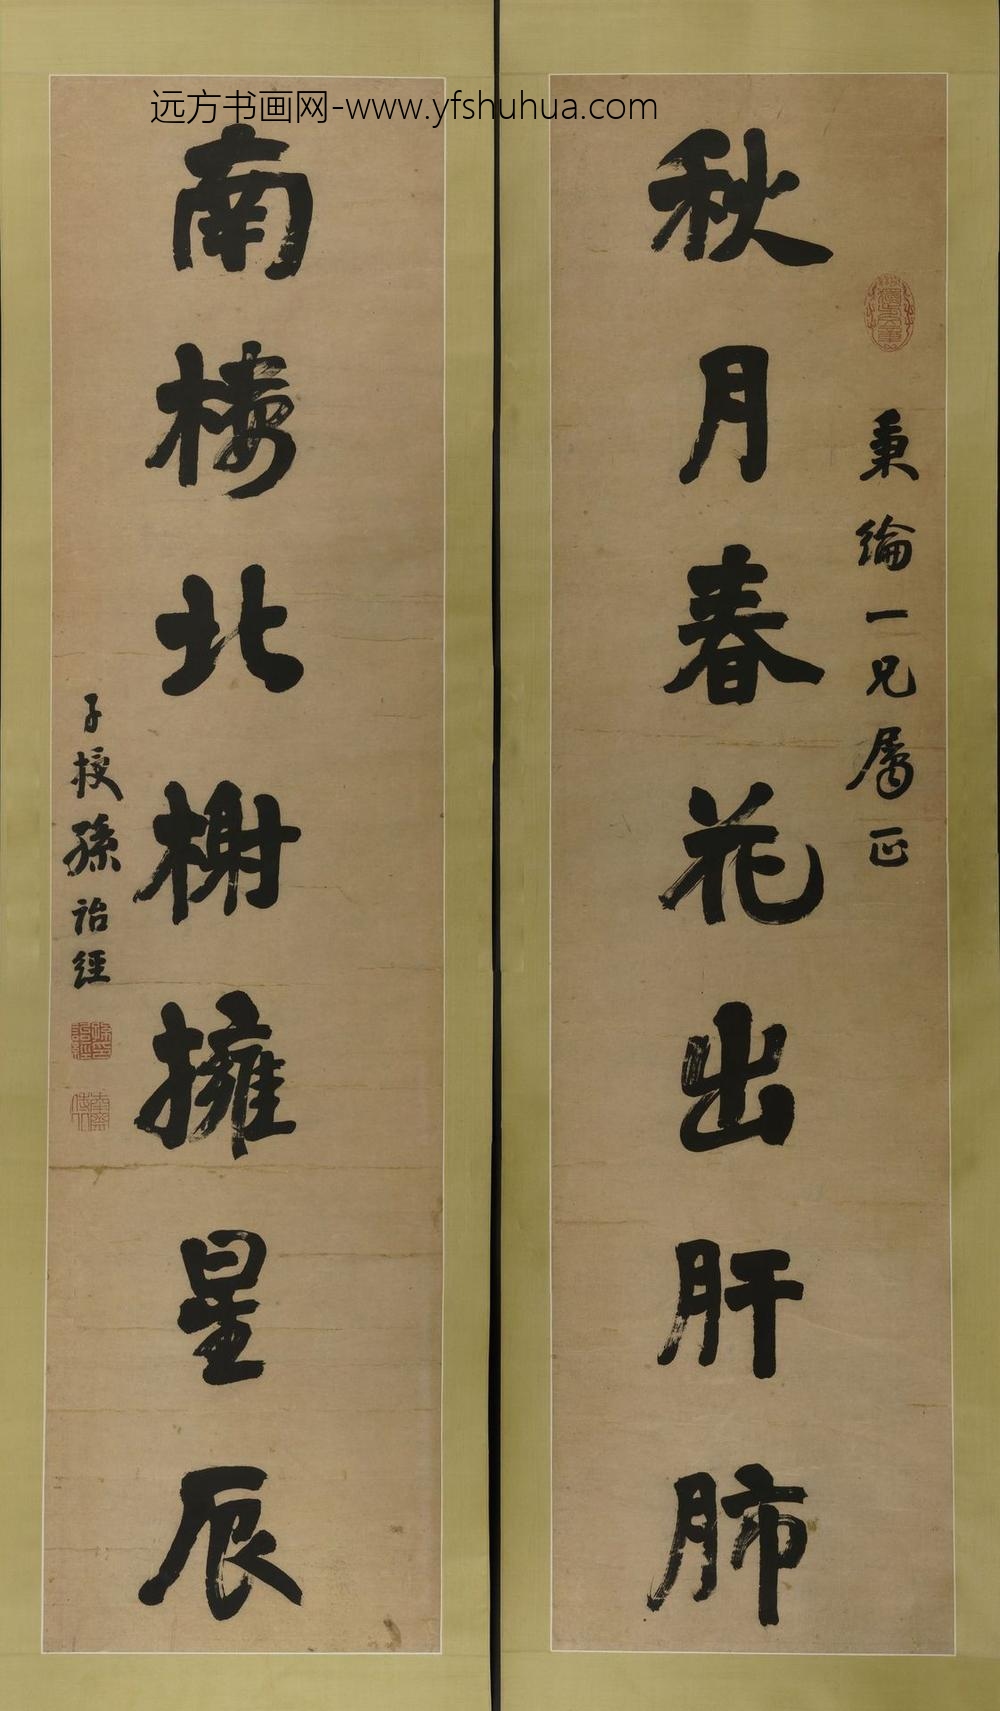 远方书画网-www.yfshuhua.com
秉綸一兄屬正
秋月春花出肝肺
南樓北榭擁星辰
子授孫詒經